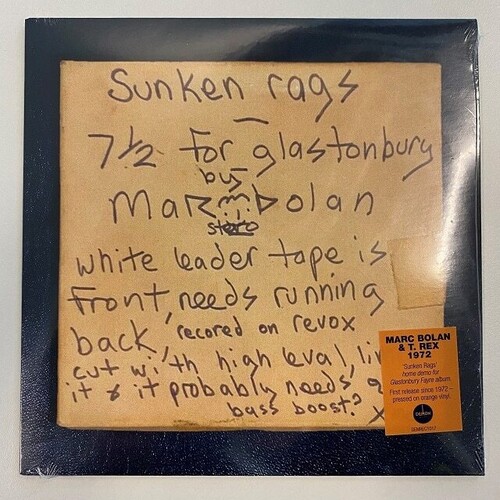 Sunken rags
7½ for glastonbury
by
Marc Bolan
stereo
white leader tape is
front, needs running
back, recored on revox
cut with high leval, li
it & it probably needs a
bass boost? x
MARC BOLAN
& T. REX
1972
'Sunken Rags'
home demo for
Glastonbury Fayre album
First release since 1972 –
pressed on orange vinyl
DEMON